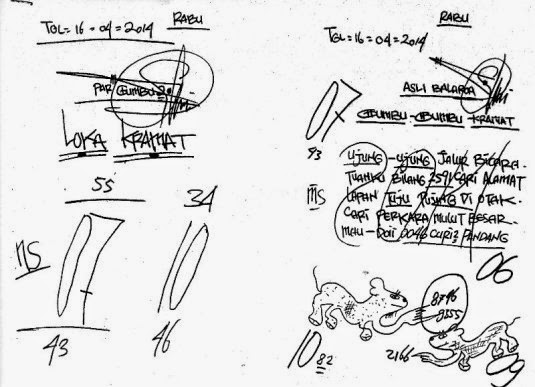 RABU
TGL = 16 = 04 = 2014
PAR GUMBU 2
LOKA KRAMAT
55
34
MS
07
10
43
46
RABU
TGL = 16 = 04 = 2014
ASLI BALARDA
GUMBU - GUMBU KRAMAT
07
93
UJUNG - UJUNG JALUR BICARA.
TUANKU BILANG 2591 CARI ALAMAT
MS
LAPAN TUJU PUSING DI OTAK.
CARI PERKARA MULUT BESAR.
MAU - DOII 0046 CURI2 PANDANG
06
8746
9555
10 82
2166
09